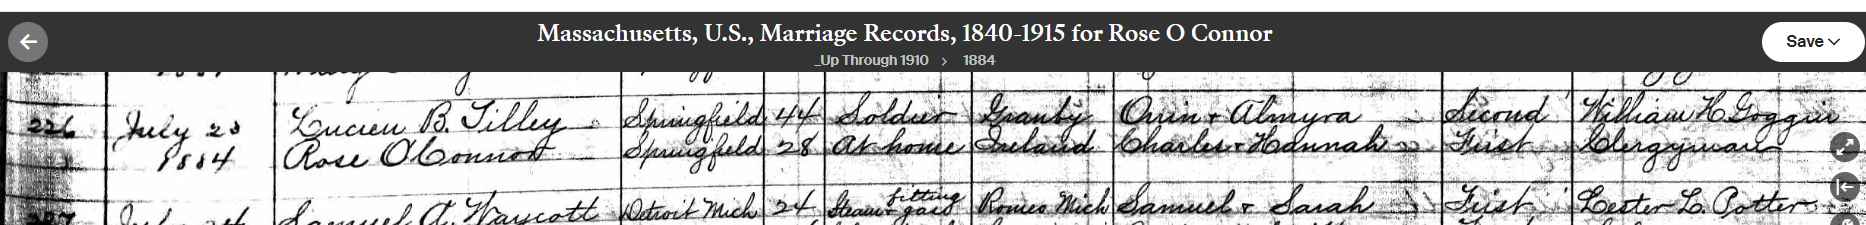 Massachusetts, U.S., Marriage Records, 1840-1915 for Rose O Connor
Save
_Up Through 1910 > 1884
226 July 23 Lucien B. Tilley Springfield 44 Soldier Granby Orrin + Almyra Second William H Goggin
1884 Rose O'Connor Springfield 28 At home Ireland Charles + Hannah First Clergyman
227 July 24 Samuel A. Waycott Detroit Mich 24 Steam + gas fitting Romeo Mich Samuel + Sarah First Lester L. Potter